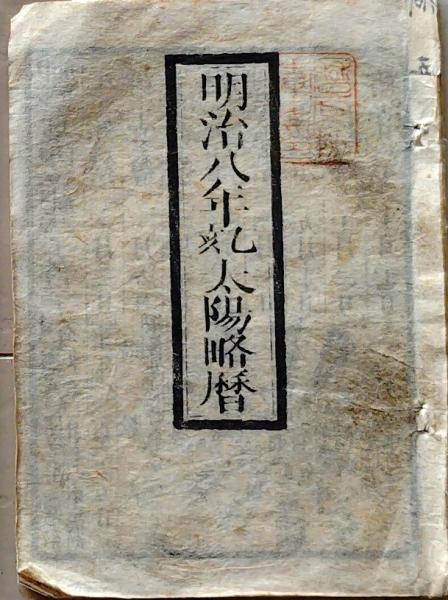 明治八年乙亥太陽略暦
五